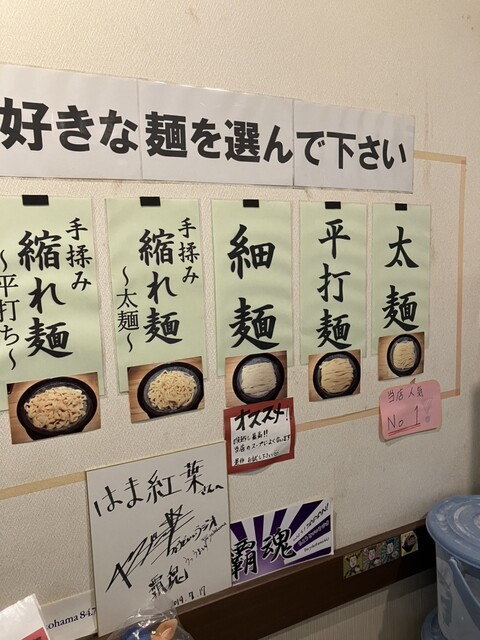 好きな麺を選んで下さい
手揉み
縮れ麺
～平打ち～
手揉み
縮れ麺
～太麺～
細麺
平打麺
太麺
オススメ!
当店人気
No 1
はま紅葉さんへ
覇魂
2019.7.17
覇魂
ohama 84.7